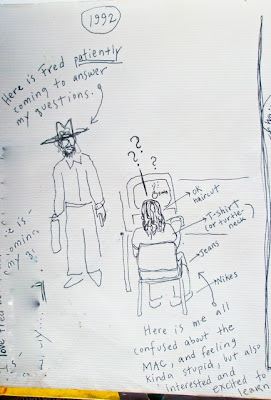 1992
Here is Fred patiently
coming to answer
my questions.
?
?
?
?
OK
haircut
T-shirt
(or turtle-
neck)
Jeans
Nikes
Here is me all
confused about the
MAC, and feeling
kinda stupid, but also
interested and
excited to
learn
love
is